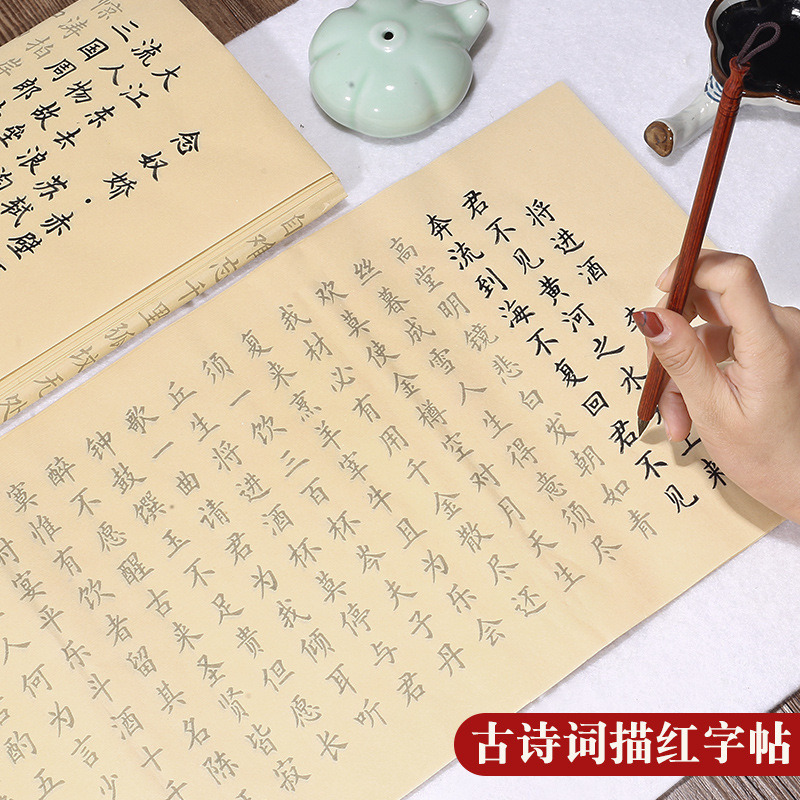 念奴娇·赤壁
苏轼
大江东去浪淘
流人物故垒
三国周郎
惊涛拍岸
自难忘千里孤坟无处
将进酒 李
君不见黄河之水上来
奔流到海不复回君不见
高堂明镜悲白发朝如青
丝暮成雪人生得意须尽
欢莫使金樽空对月天生
我材必有用千金散尽还
复来烹羊宰牛且为乐会
须一饮三百杯岑夫子丹
丘生将进酒杯莫停与君
歌一曲请君为我倾耳听
钟鼓馔玉不足贵但愿长
醉不愿醒古来圣贤皆寂
寞惟有饮者留其名陈
时宴平乐斗酒十千
人何为言少
酌五
古诗词描红字帖